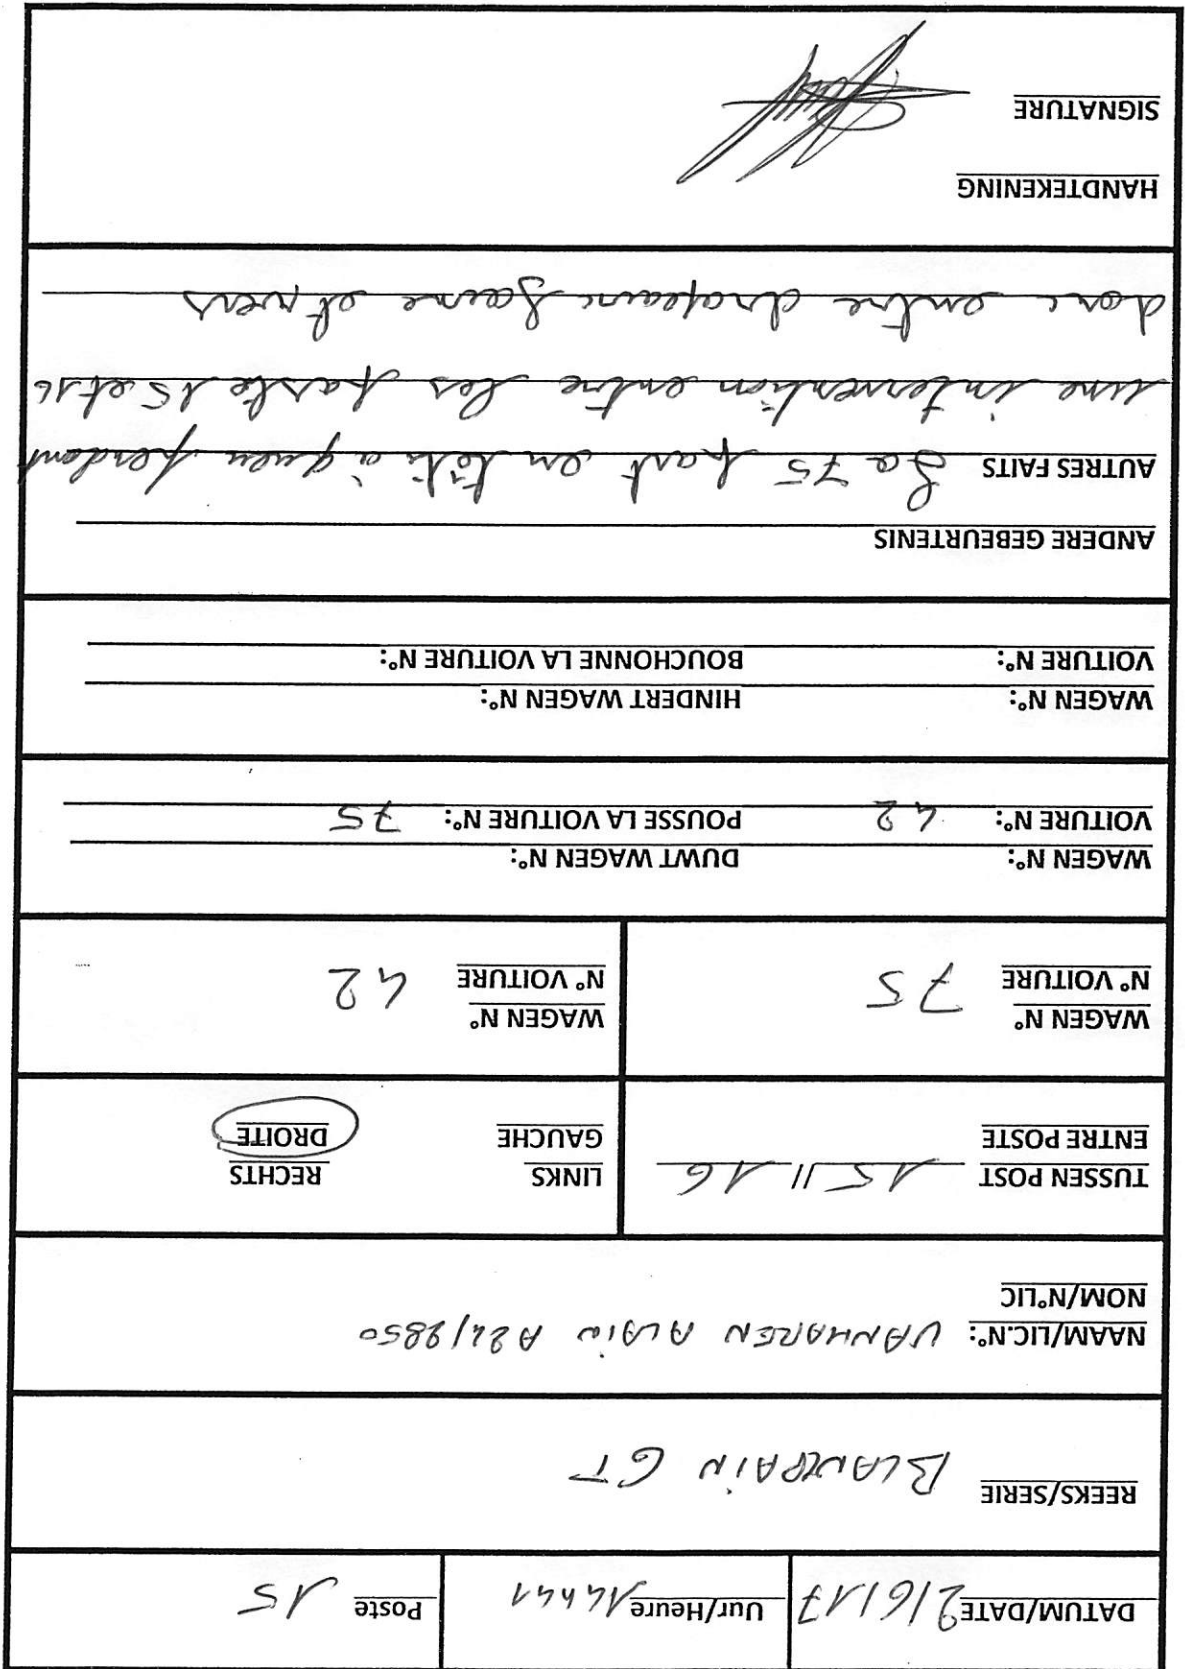 DATUM/DATE 2/6/17 Uur/Heure 14h41 Poste 15
REEKS/SERIE BLANCPAIN GT
NAAM/LIC.N°: VANHAREN ALAIN A24/2850
NOM/N°LIC
TUSSEN POST 15 // 16 LINKS RECHTS
ENTRE POSTE GAUCHE DROITE
WAGEN N° 75 WAGEN N° 42
N° VOITURE N° VOITURE
WAGEN N°: DUWT WAGEN N°:
VOITURE N°: 42 POUSSE LA VOITURE N°: 75
WAGEN N°: HINDERT WAGEN N°:
VOITURE N°: BOUCHONNE LA VOITURE N°:
ANDERE GEBEURTENIS
AUTRES FAITS La 75 part en tête à queu pendant
une intervention entre les poste 15 et 16
donc entre drapeau jaune et vers
HANDTEKENING
SIGNATURE